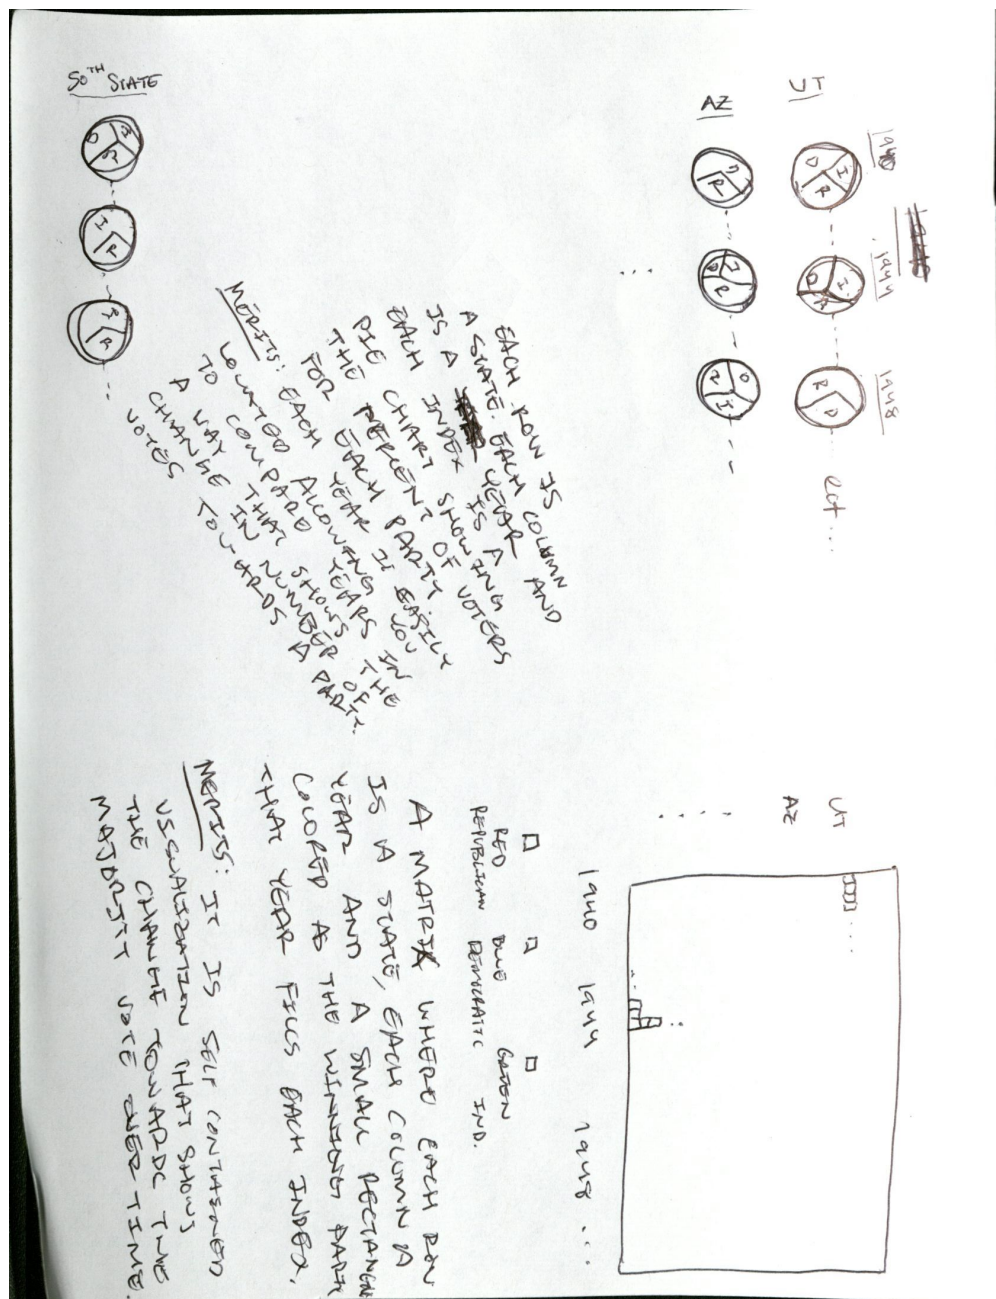 1940 1944 1948
UT
I
D
R
I
D
R
R
D
ect...
AZ
D
R
I
D
R
D
R
I
50TH STATE
R
D
I
R
R
EACH ROW IS
A STATE. EACH COLUMN AND
IS A YEAR
EACH INDEX IS A
PIE CHART SHOWING
THE PERCENT OF VOTERS
FOR EACH PARTY.
MERITS: EACH YEAR IS EASILY
LOCATED ALLOWING YOU
TO COMPARE YEARS IN
A WAY THAT SHOWS THE
CHANGE IN NUMBER OF
VOTES TOWARDS A PARTY.
UT
AZ
1940 1944 1948 ...
RED BLUE GREEN
REPUBLICAN DEMOCRATIC IND.
A MATRIX WHERE EACH ROW
IS A STATE, EACH COLUMN A
YEAR AND A SMALL RECTANGLE
COLORED AS THE WINNING PARTY
THAT YEAR FILLS EACH INDEX.
MERITS: IT IS SELF CONTAINED
VISUALIZATION THAT SHOWS
THE CHANGE TOWARDS THE
MAJORITY VOTE OVER TIME.